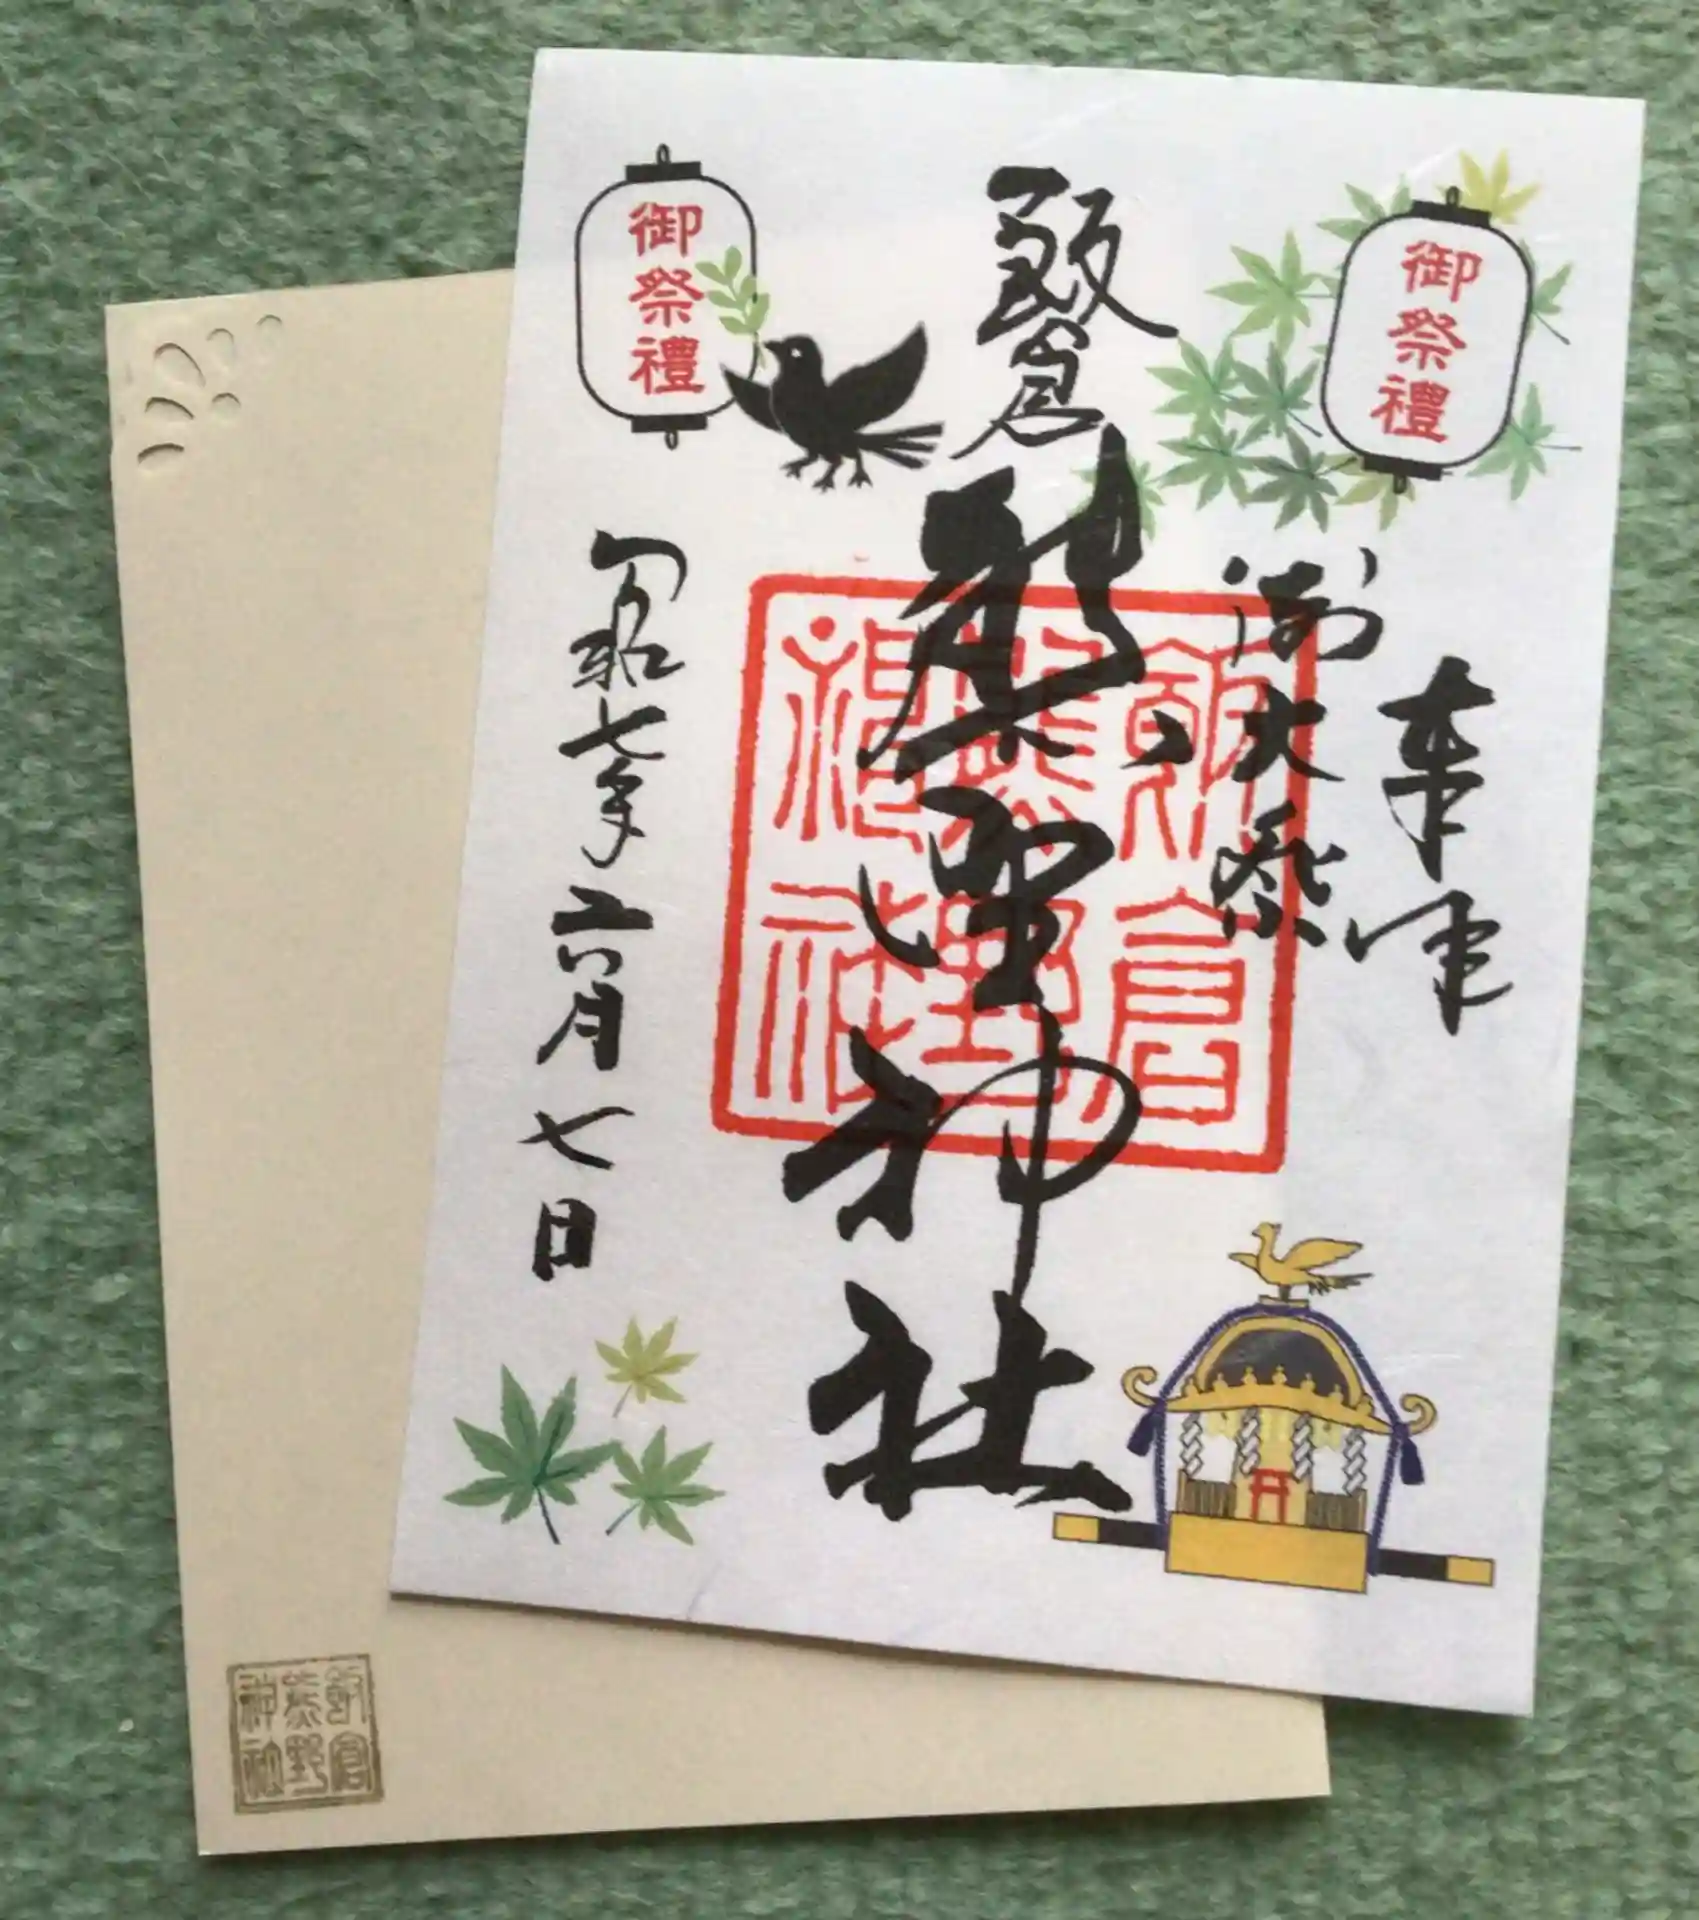 御祭禮
御祭禮
奉拝
例大祭
飯倉
熊野神社
令和七年六月七日
飯倉
熊野
神社
飯倉
熊野
神社